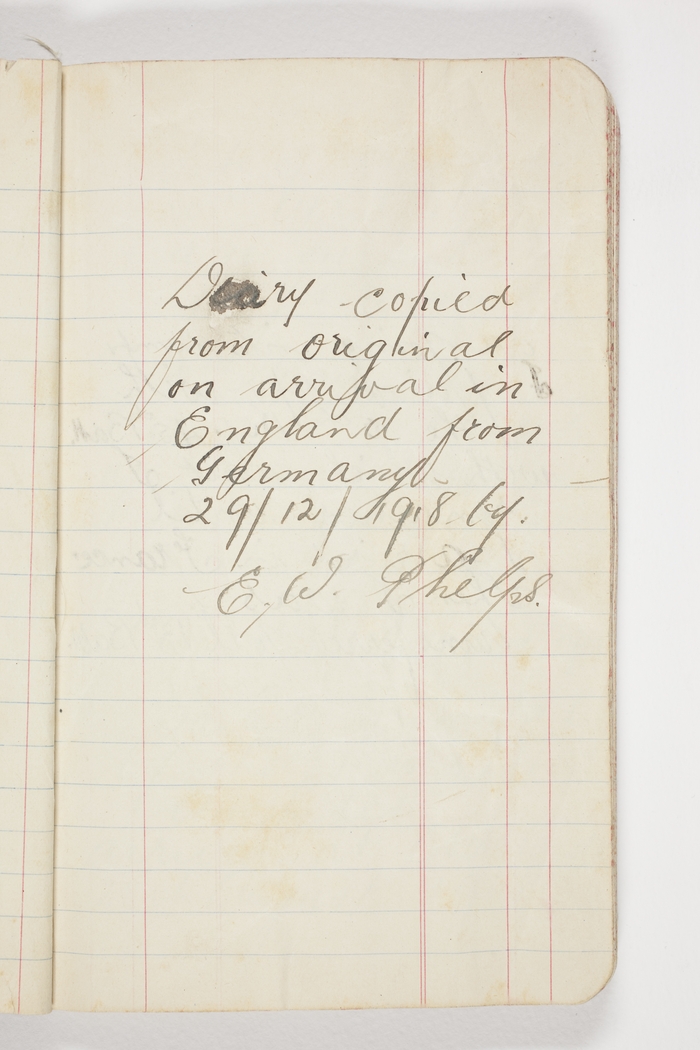 Diary copied
from original
on arrival in
England from
Germany.
29/12/1918 by.
E. W. Phelps.